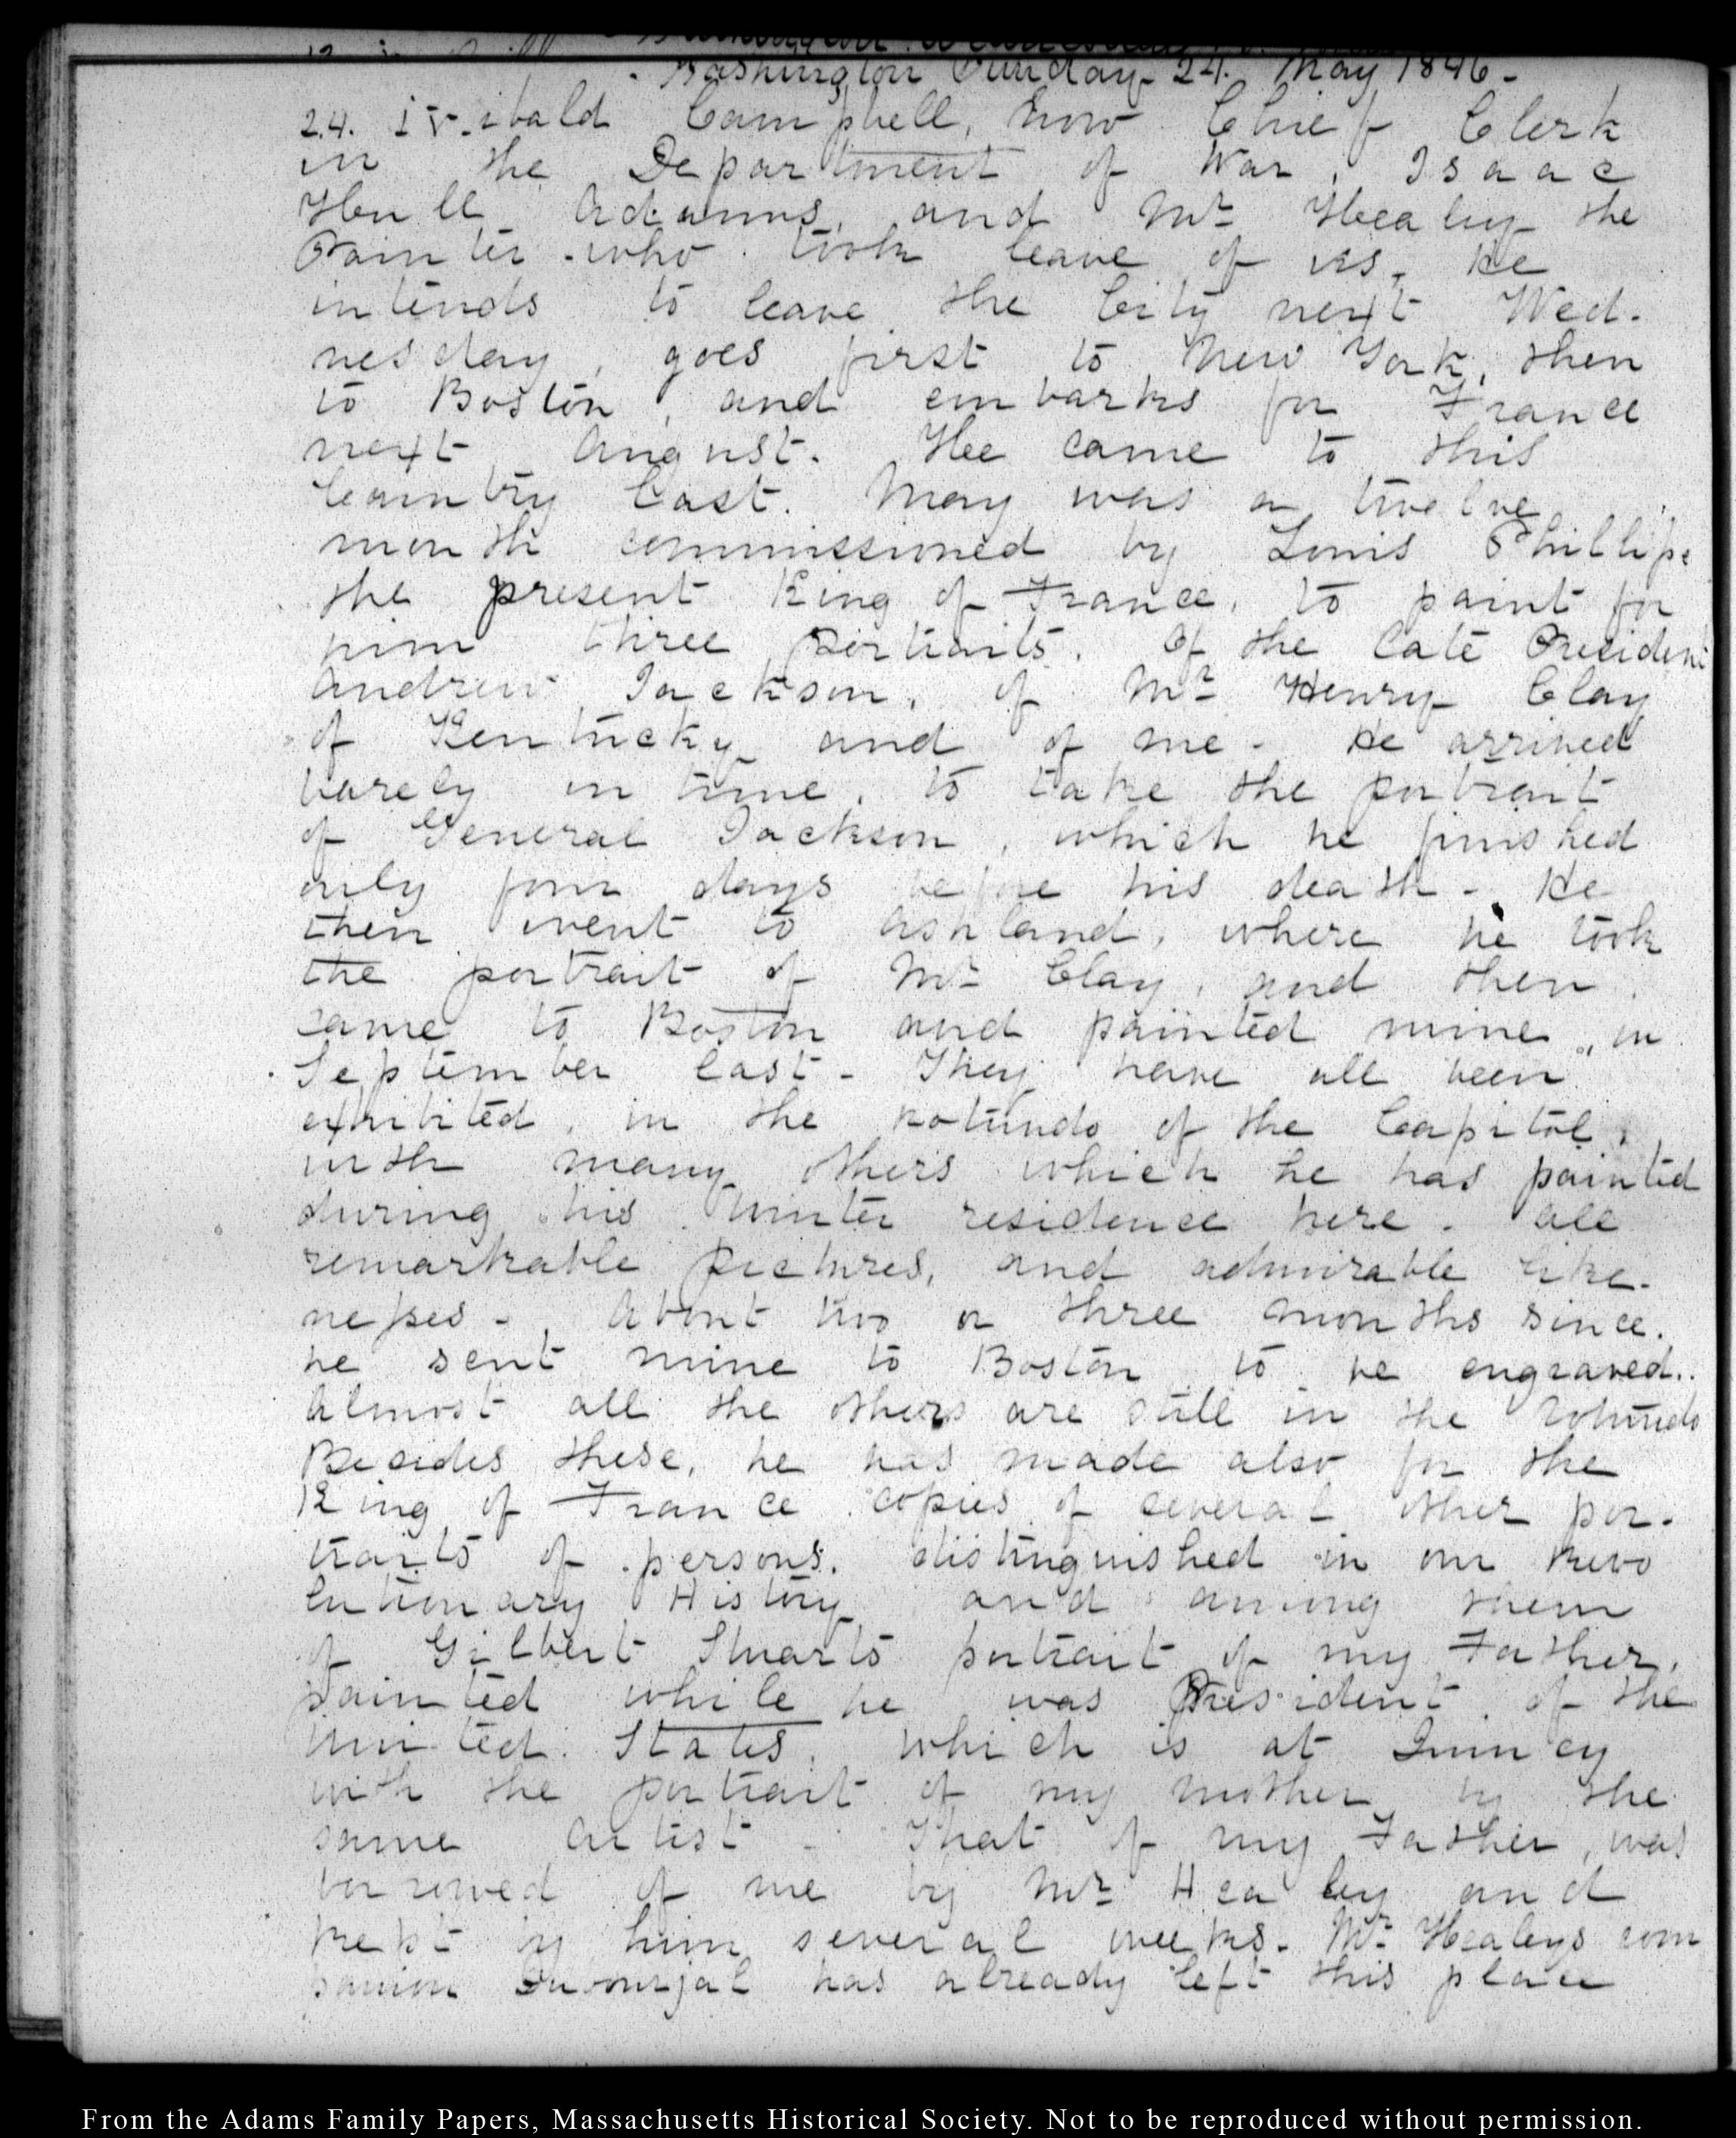 Washington Sunday 24. May 1846-
24. IV. ibald Campbell, now Chief Clerk
in the Department of War, Isaac
Hull Adams, and Mr Healey the
Painter who took leave of us, He
intends to leave the City next Wed-
nesday, goes first to New York, then
to Boston, and embarks for France
next August. Hee came to this
Country last May was a twelve
month commissioned by Louis Phillipe
the present King of France, to paint for
him three portraits. Of the late President
Andrew Jackson, of Mr Henry Clay
of Kentucky and of me - He arrived
barely in time, to take the portrait
of General Jackson, which he finished
only four days before his death - He
then went to Ashland, where he took
the portrait of Mr Clay, and then
came to Boston and painted mine, in
September last - They have all been
exhibited, in the rotundo of the Capitol,
with many others which he has painted
during his Winter residence here. All
remarkable pictures, and admirable like-
nesses - About two or three months since.
he sent mine to Boston to be engraved.
Almost all the others are still in the Rotundo
Besides these, he has made also for the
King of France copies of several other por-
traits of persons, distinguished in our Revo
lutionary History and among them
of Gilbert Stuarts portrait of my Father,
painted while he was President of the
United States, which is at Quincy
with the portrait of my mother by the
same Artist - That of my Father, was
borrowed of me by Mr Healey and
kept by him several weeks. Mr Healeys com
panion has already left this place
From the Adams Family Papers, Massachusetts Historical Society. Not to be reproduced without permission.